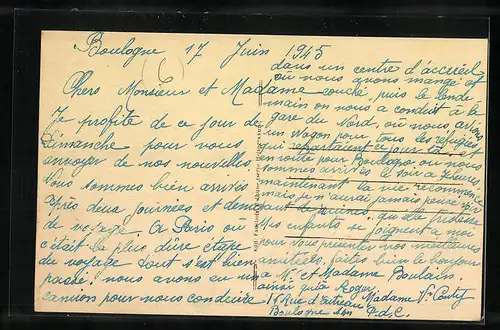 Boulogne 17 Juin 1945
Chers Monsieur et Madame
Je profite de ce jour de
dimanche pour vous
envoyer de nos nouvelles
Nous sommes bien arrivés
après deux journées et demi
de voyage. A Paris où
c'était la plus dure étape
du voyage tout s'est bien
passé: nous avons eu un
camion pour nous conduire
dans un centre d'accueil
où nous avons mangé et
couché, puis le lende
main on nous a conduit à la
gare du Nord, où nous avions
un wagon pour tous les réfugiés
qui repartaient ce jour là et
en route pour Boulogne où nous
sommes arrivés le soir à heures.
maintenant la vie recommence
mais je n'aurai jamais pensé voir
de ruines. que de tristesse
Mes enfants se joignent à moi
pour vous présenter nos meilleures
amitiés, faites bien le bonjour
à M. et Madame Boulain.
ainsi qu'à Roger.
Madame Vve
16 Rue
Boulogne s/m P.d.C.